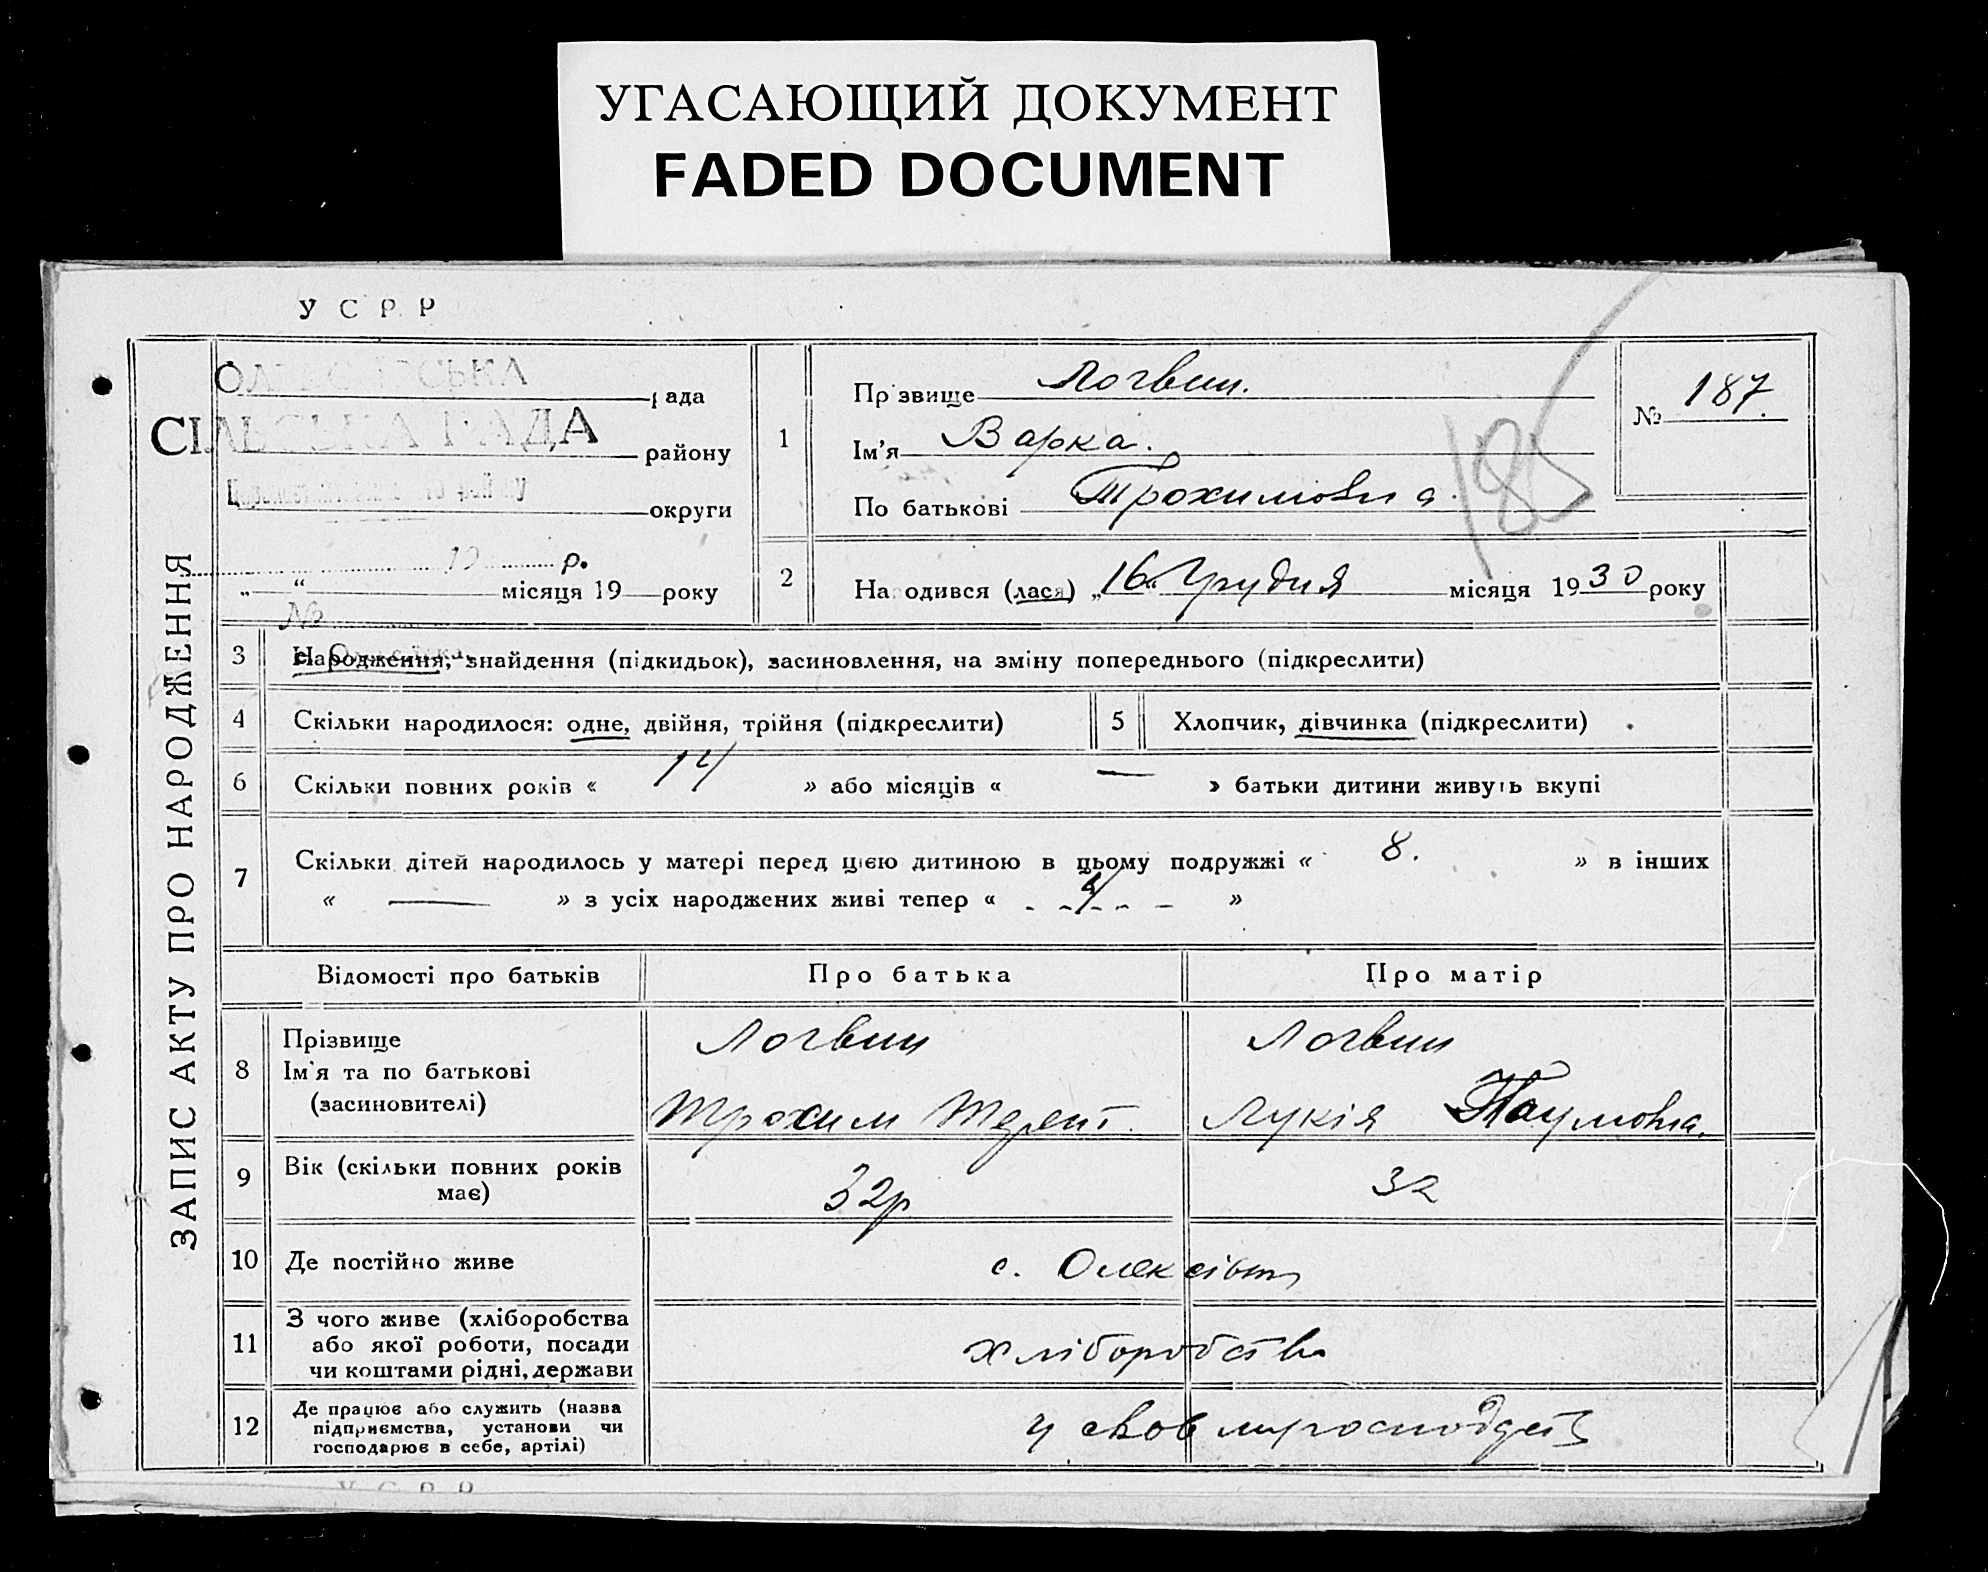 УГАСАЮЩИЙ ДОКУМЕНТ
FADED DOCUMENT
У С Р Р
ЗАПИС АКТУ ПРО НАРОДЖЕННЯ
рада
СІЛЬСЬКА РАДА
району
округи
19 р.
„ “ місяця 19 року
№
1
Прізвище Логвин.
Ім’я Варка.
По батькові Трохимовна.
№ 187.
185
2
Народився (лася) „16“ Грудня місяця 1930 року
3
Народження, знайдення (підкидьок), засиновлення, на зміну попереднього (підкреслити)
4
Скільки народилося: одне, двійня, трійня (підкреслити)
5
Хлопчик, дівчинка (підкреслити)
6
Скільки повних років « 14 » або місяців « — » батьки дитини живуть вкупі
7
Скільки дітей народилось у матері перед цією дитиною в цьому подружжі « 8. » в інших
« — » з усіх народжених живі тепер « 4 »
Відомості про батьків
Про батька
Про матір
8
Прізвище
Ім’я та по батькові
(засиновителі)
Логвин
Трохим Терент.
Логвин
Лукія Наумовна.
9
Вік (скільки повних років
має)
32р
32
10
Де постійно живе
с. Олексівка
11
З чого живе (хліборобства
або якої роботи, посади
чи коштами рідні, держави
хліборобства
12
Де працює або служить (назва
підприємства, установи чи
господарює в себе, артілі)
у своєму господ
У С Р Р